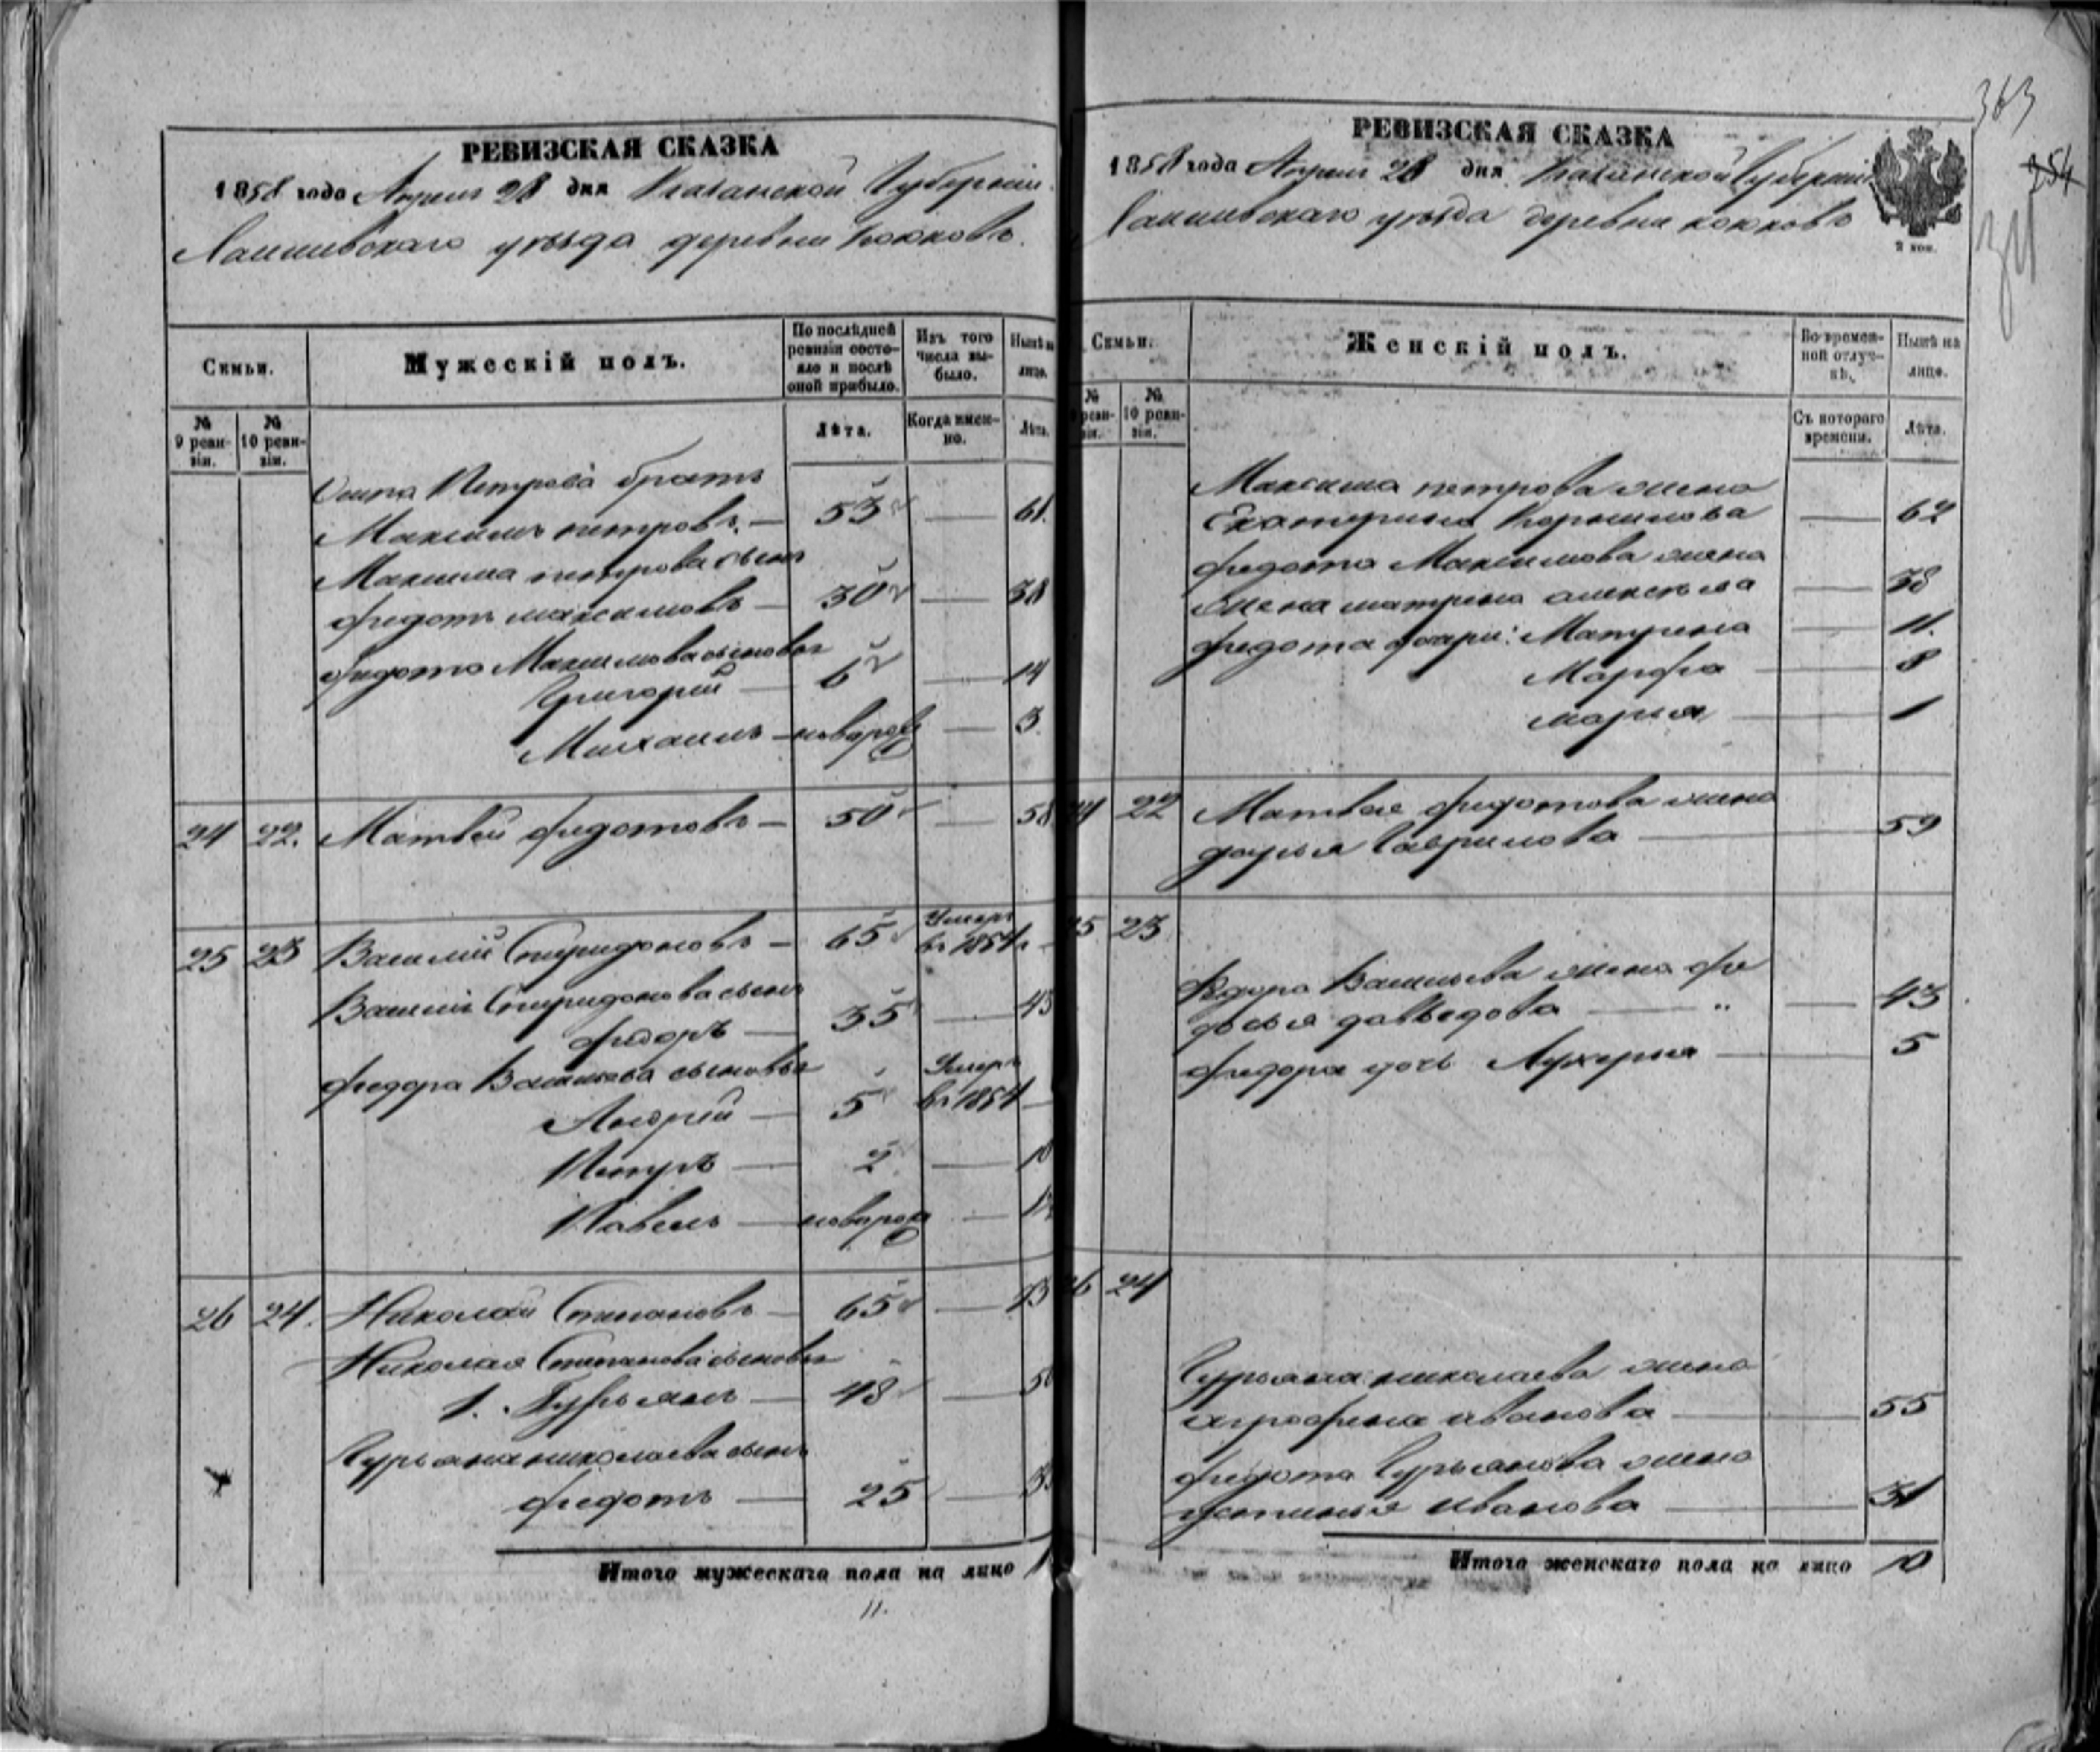 РЕВИЗСКАЯ СКАЗКА
1858 года Апреля 28 дня Казанской Губернии
Лаишевскаго уезда деревни Коконов
Семьи.
Мужескій полъ.
По послѣдней ревизіи состо-
яло и послѣ оной прибыло.
Изъ того числа вы-
было.
Нынѣ на лицо.
№ 9 реви-
зіи.
№ 10 реви-
зіи.
Лѣта.
Когда имен-
но.
Лѣта.
Осипа Петрова братъ
Максимъ петровъ — 53 — 61.
Максима петрова сынъ
федотъ максимовъ — 30 — 38
федота Максимова сыновья
Григорій — 6 — 14
Михаилъ — новорож — 3
24 22. Матвей федотовъ — 50 — 58
25 23 Василій Спиридоновъ — 65 Умеръ
въ 1854 —
Василія Спиридонова сынъ
федоръ — 35 — 43
федора Васильева сыновья
Андрей — 5 Умеръ
въ 1854 —
Петръ — 2 — 10
Павелъ — новорож —
26 24. Николай Степановъ — 65 — 73
Николая Степанова сыновья
1. Гурьянъ — 48 —
Гурьяна николаева сынъ
федотъ — 25 —
Итого мужескаго пола на лицо
11.
363
254
РЕВИЗСКАЯ СКАЗКА
1858 года Апреля 28 дня Казанской Губерніи
Лаишевскаго уезда деревни
2 коп.
Семьи.
Женскій полъ.
Во времен-
ной отлуч-
кѣ.
Нынѣ на лицо.
№ реви-
зіи.
№ 10 реви-
зіи.
Съ котораго времени.
Лѣта.
Максима петрова жена
Екатерина — 62
федота Максимова жена
жена матрена — 38
федота дочери: Матрена — 11.
Марфа — 8
марья — 1
24 22 Матвея федотова жена
дарья Гаврилова — 59
25 23
Федора Васильева жена фе
досья давыдова — " — 43
федора дочь Лукерья — 5
26 24
Гурьяна николаева жена
аграфена иванова — 55
федота Гурьянова жена
устинья Иванова — 31
Итого женскаго пола на лицо 10